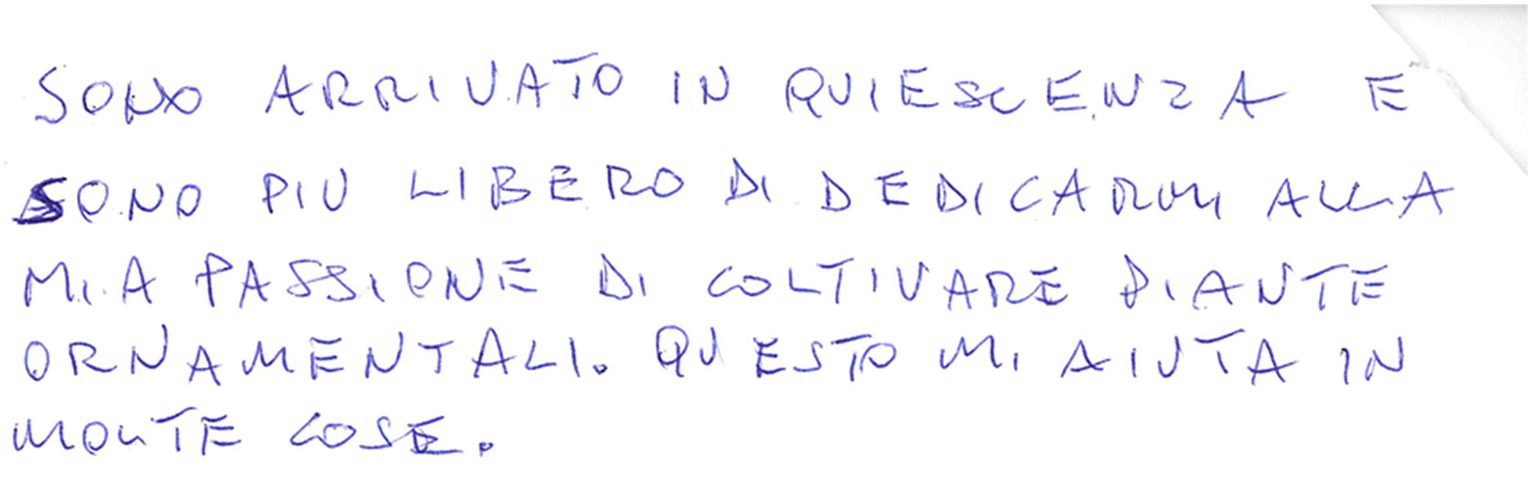 SONO ARRIVATO IN QUIESCENZA E
SONO PIU LIBERO DI DEDICARMI ALLA
MIA PASSIONE DI COLTIVARE PIANTE
ORNAMENTALI. QUESTO MI AIUTA IN
MOLTE COSE.